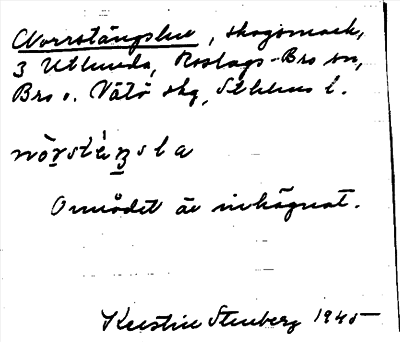 Norrstängslue, skogsmark,
3 Utlunda, Roslags-Bro sn,
Bro o. Vätö skg, Sthlms l.
Området är inhägnat.
Kerstin Stenberg 1945